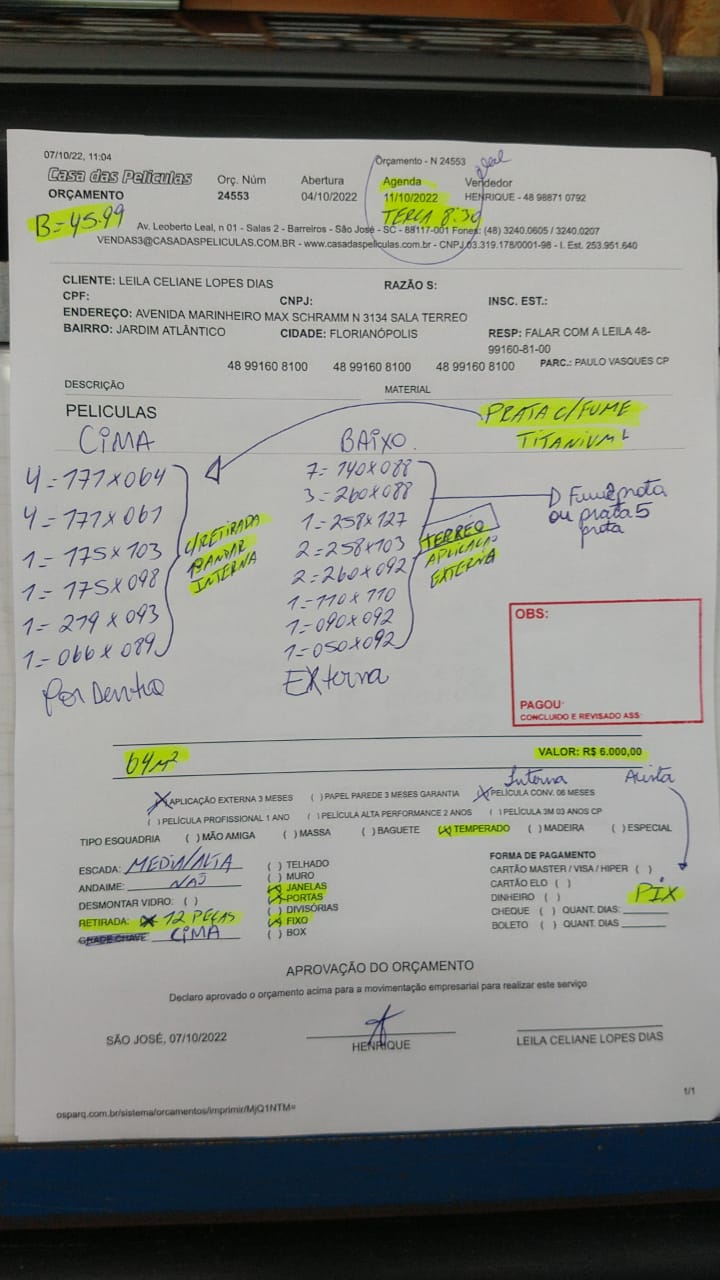 07/10/22, 11:04
Orçamento - N 24553
Casa das Peliculas
ORÇAMENTO
Orç. Núm
24553
Abertura
04/10/2022
Agenda
11/10/2022
TERÇA 8:30
Vendedor
HENRIQUE - 48 98871 0792
B=45.99
Av. Leoberto Leal, n 01 - Salas 2 - Barreiros - São José - SC - 88117-001 Fones: (48) 3240.0605 / 3240.0207
VENDAS3@CASADASPELICULAS.COM.BR - www.casadaspeliculas.com.br - CNPJ 03.319.178/0001-98 - I. Est. 253.951.640
CLIENTE: LEILA CELIANE LOPES DIAS
RAZÃO S:
CPF:
CNPJ:
INSC. EST.:
ENDEREÇO: AVENIDA MARINHEIRO MAX SCHRAMM N 3134 SALA TERREO
BAIRRO: JARDIM ATLÂNTICO
CIDADE: FLORIANÓPOLIS
RESP: FALAR COM A LEILA 48-
99160-81-00
48 99160 8100 48 99160 8100 48 99160 8100
PARC.: PAULO VASQUES CP
DESCRIÇÃO
MATERIAL
PELICULAS
PRATA C/FUME
TITANIUM
CIMA
4=171x064
4=171x061
1=175x103
1=175x098
1=279x093
1=066x089
C/RETIRADA
1º ANDAR
INTERNA
Por Dentro
BAIXO
7=140x088
3=260x088
1=258x127
2=258x103
2=260x092
1=110x110
1=090x092
1=050x092
TERREO
APLICAÇÃO
EXTERNA
Externa
ou prata 5
OBS:
PAGOU:
CONCLUIDO E REVISADO ASS:
64m²
VALOR: R$ 6.000,00
Interna
Avista
(X) APLICAÇÃO EXTERNA 3 MESES ( ) PAPEL PAREDE 3 MESES GARANTIA (X) PELÍCULA CONV. 06 MESES
( ) PELÍCULA PROFISSIONAL 1 ANO ( ) PELÍCULA ALTA PERFORMANCE 2 ANOS ( ) PELÍCULA 3M 03 ANOS CP
TIPO ESQUADRIA ( ) MÃO AMIGA ( ) MASSA ( ) BAGUETE (X) TEMPERADO ( ) MADEIRA ( ) ESPECIAL
ESCADA: MEDIA/ALTA
ANDAIME: NÃO
DESMONTAR VIDRO: ( )
RETIRADA: (X) 12 PEÇAS
GRADE CHAVE: CIMA
( ) TELHADO
( ) MURO
(X) JANELAS
(X) PORTAS
( ) DIVISÓRIAS
(X) FIXO
( ) BOX
FORMA DE PAGAMENTO
CARTÃO MASTER / VISA / HIPER ( )
CARTÃO ELO ( )
DINHEIRO ( )
CHEQUE ( ) QUANT. DIAS:
BOLETO ( ) QUANT. DIAS
PIX
APROVAÇÃO DO ORÇAMENTO
Declaro aprovado o orçamento acima para a movimentação empresarial para realizar este serviço
SÃO JOSÉ, 07/10/2022
HENRIQUE
LEILA CELIANE LOPES DIAS
1/1
osparq.com.br/sistema/orcamentos/imprimir/MjQ1NTM=